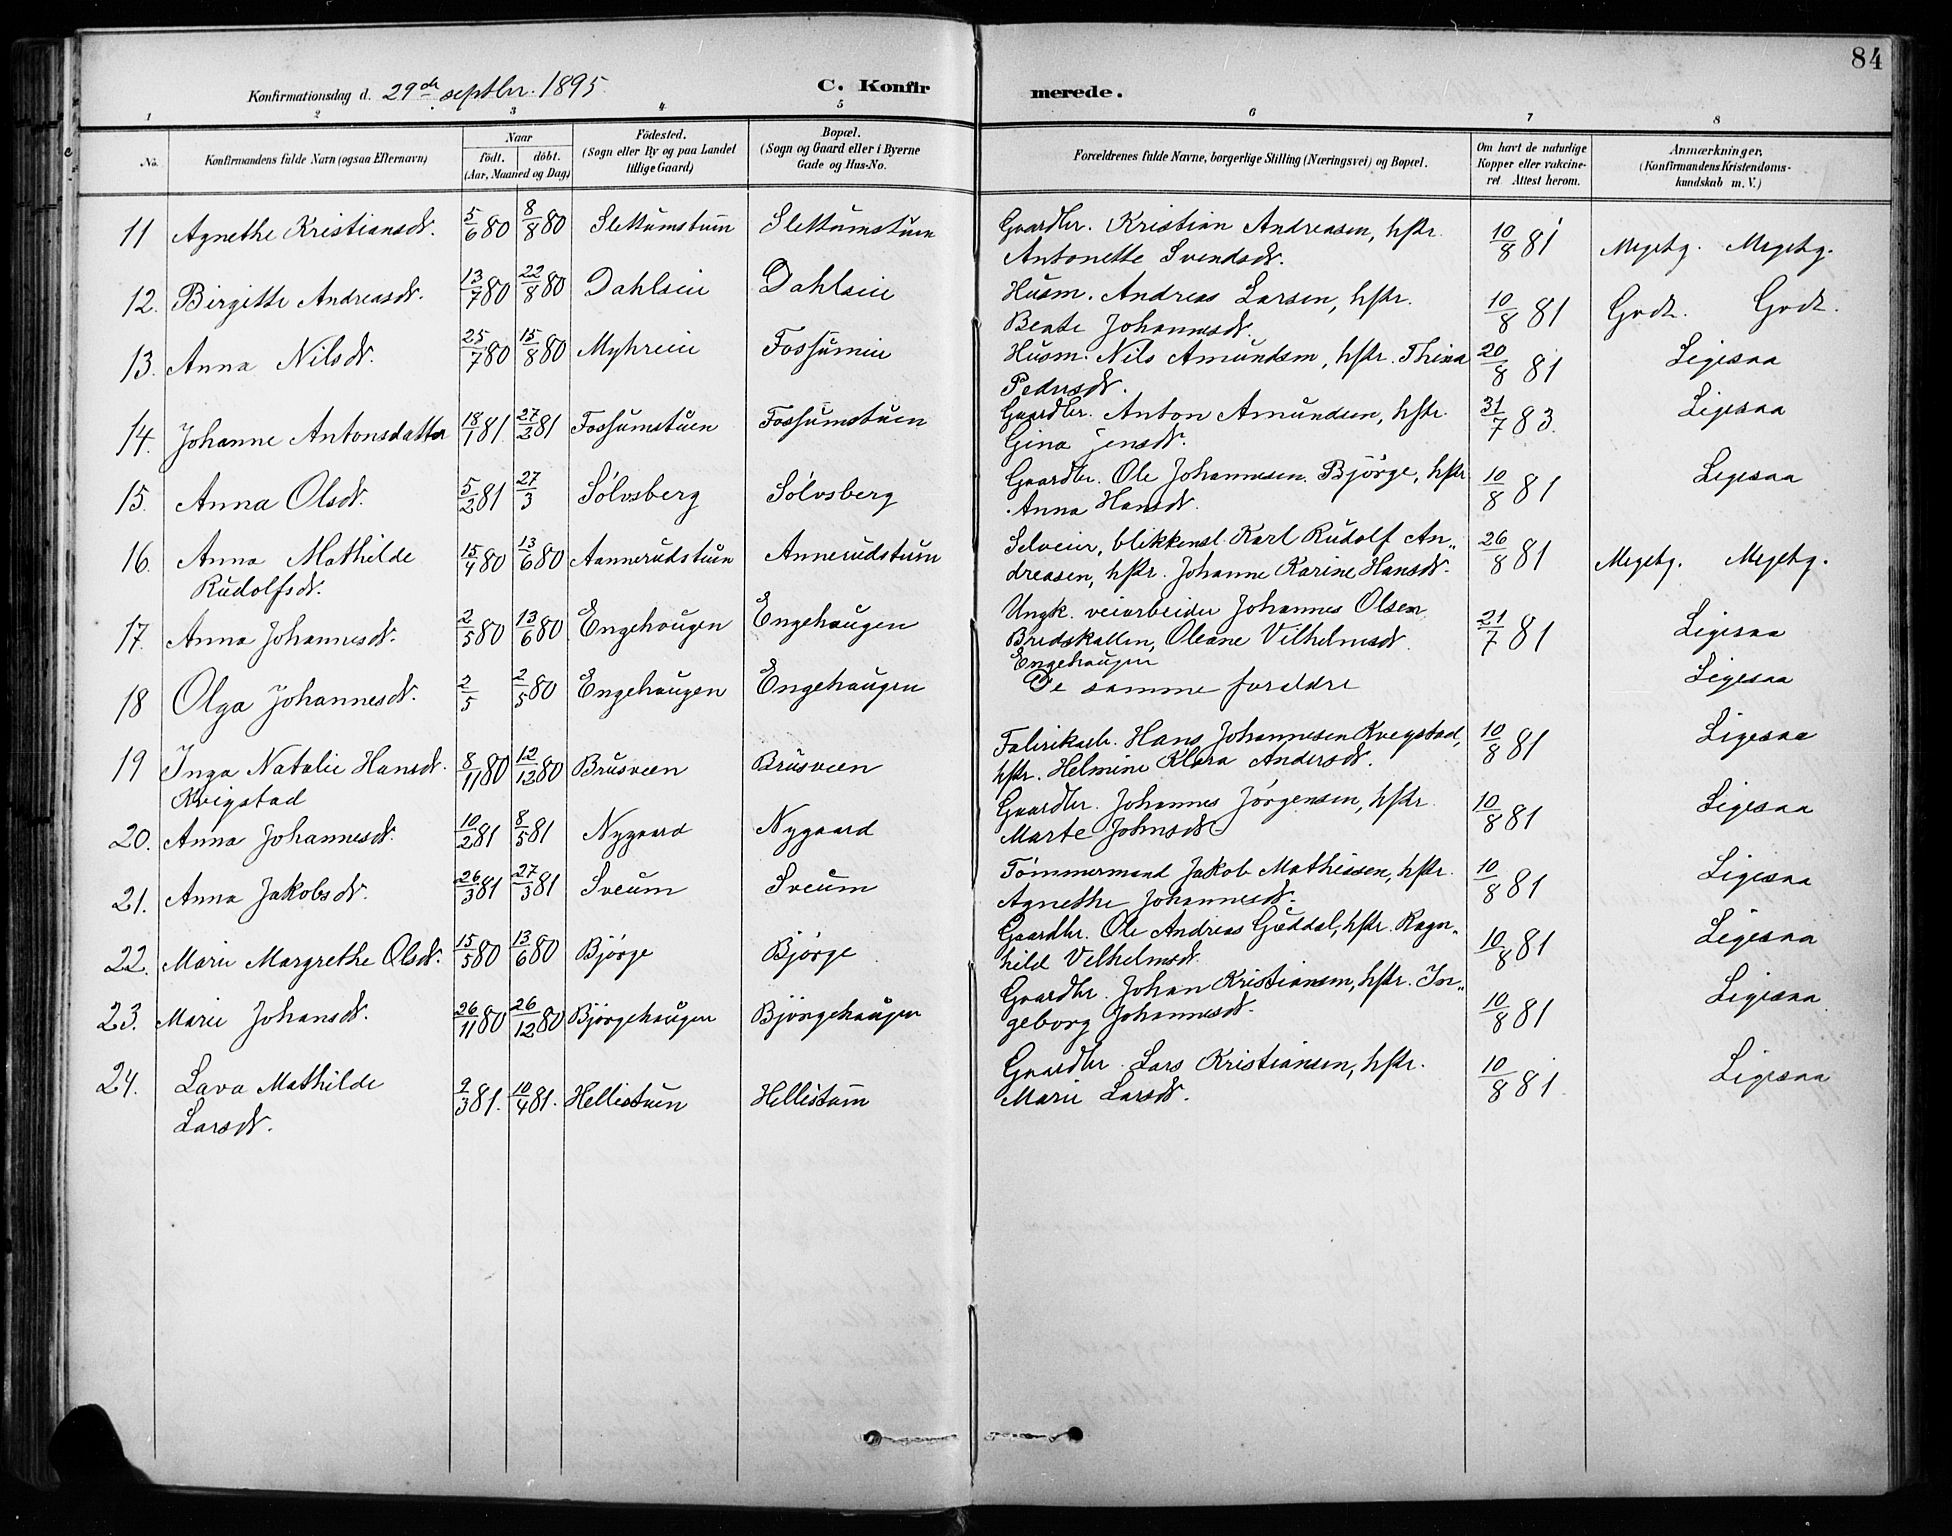 84
Konfirmationsdag d. 29de septbr. 1895.
C. Konfirmerede.
1 2 3 4 5 6 7 8
No. Konfirmandens fulde Navn (ogsaa Efternavn) Naar födt. döbt. (Aar, Maaned og Dag) Födested. (Sogn eller By og paa Landet tillige Gaard) Bopæl. (Sogn og Gaard eller i Byerne Gade og Hus-No. Forældrenes fulde Navne, borgerlige Stilling (Næringsvei) og Bopæl. Om havt de naturlige Kopper eller vakcineret. Attest herom. Anmærkninger, (Konfirmandens Kristendomskundskab m. V.)
11 Agnethe Kristiansdt. 5/6 80 8/8 80 Slettumstuen Slettumstuen Gaardbr. Kristian Andreasen, hstr.
Antonette Svendsdt. 10/8 81 Megetg. Megetg.
12. Birgitte Andreasdt. 13/7 80 22/8 80 Dahlseie Dahlseie Husm. Andreas Larsen, hstr.
Beate Johannesdt. 10/8 81 Godt. Godt.
13. Anna Nilsdt. 25/7 80 15/8 80 Myhreie Fossumeie Husm. Nils Amundsen, hstr. Thina
Pedersdt. 20/8 81 Ligesaa
14. Johanne Antonsdatter 18/1 81 27/2 81 Fossumstuen Fossumstuen Gaardbr. Anton Amundsen, hstr.
Gina Jensdt. 31/7 83. Ligesaa
15. Anna Olsdt. 5/2 81 27/3 Sölvsberg Sölvsberg Gaardbr. Ole Johannesen Björge, hstr.
Anna Hansdt. 10/8 81 Ligesaa
16. Anna Mathilde 15/4 80 13/6 80 Aannerudstuen Annerudstuen Selveier, blikkensl. Karl Rudolf An„
Rudolfsdt. dreasen, hstr. Johanne Karine Hansdt. 26/8 81 Megetg. Megetg.
17. Anna Johannesdt. 2/5 80 13/6 80 Engehaugen Engehaugen Ungk. veiarbeider Johannes Olsen
Bredskallen, Oleane Vilhelmsdt. 21/7 81 Ligesaa
Engehaugen
18 Olga Johannesdt. 2/5 2/5 80 Engehaugen Engehaugen De samme forældre Ligesaa
19 Inga Natalie Hansdt. 8/11 80 12/12 80 Brusveen Brusveen Fabrikarb. Hans Johannesen Kvegstad,
Kvigstad hstr. Helmine Klara Andersdt. 10/8 81 Ligesaa
20. Anna Johannesdt. 10/2 81 8/5 81 Nygaard Nygaard Gaardbr. Johannes Jörgensen, hstr.
Marte Johnsdt. 10/8 81 Ligesaa
21. Anna Jakobsdt. 26/3 81 27/3 81 Sveum Sveum Tömmermand Jakob Mathissen, hstr.
Agnethe Johannesdt. 10/8 81 Ligesaa
22. Marie Margrethe Olsdt. 15/5 80 13/6 80 Björge Björge Gaardbr. Ole Andreas Gæddal, hstr. Ragn„
hild Vilhelmsdt. 10/8 81 Ligesaa
23. Marie Johansdt. 26/11 80 26/12 80 Björgehaugen Björgehaugen Gaardbr. Johan Kristiansen, hstr. In„
geborg Johannesdt. 10/8 81 Ligesaa
24. Lava Mathilde 2/3 81. 10/4 81. Hellistuen Hellistuen Gaardbr. Lars Kristiansen, hstr.
Larsdt. Marie Larsdt. 10/8 81 Ligesaa